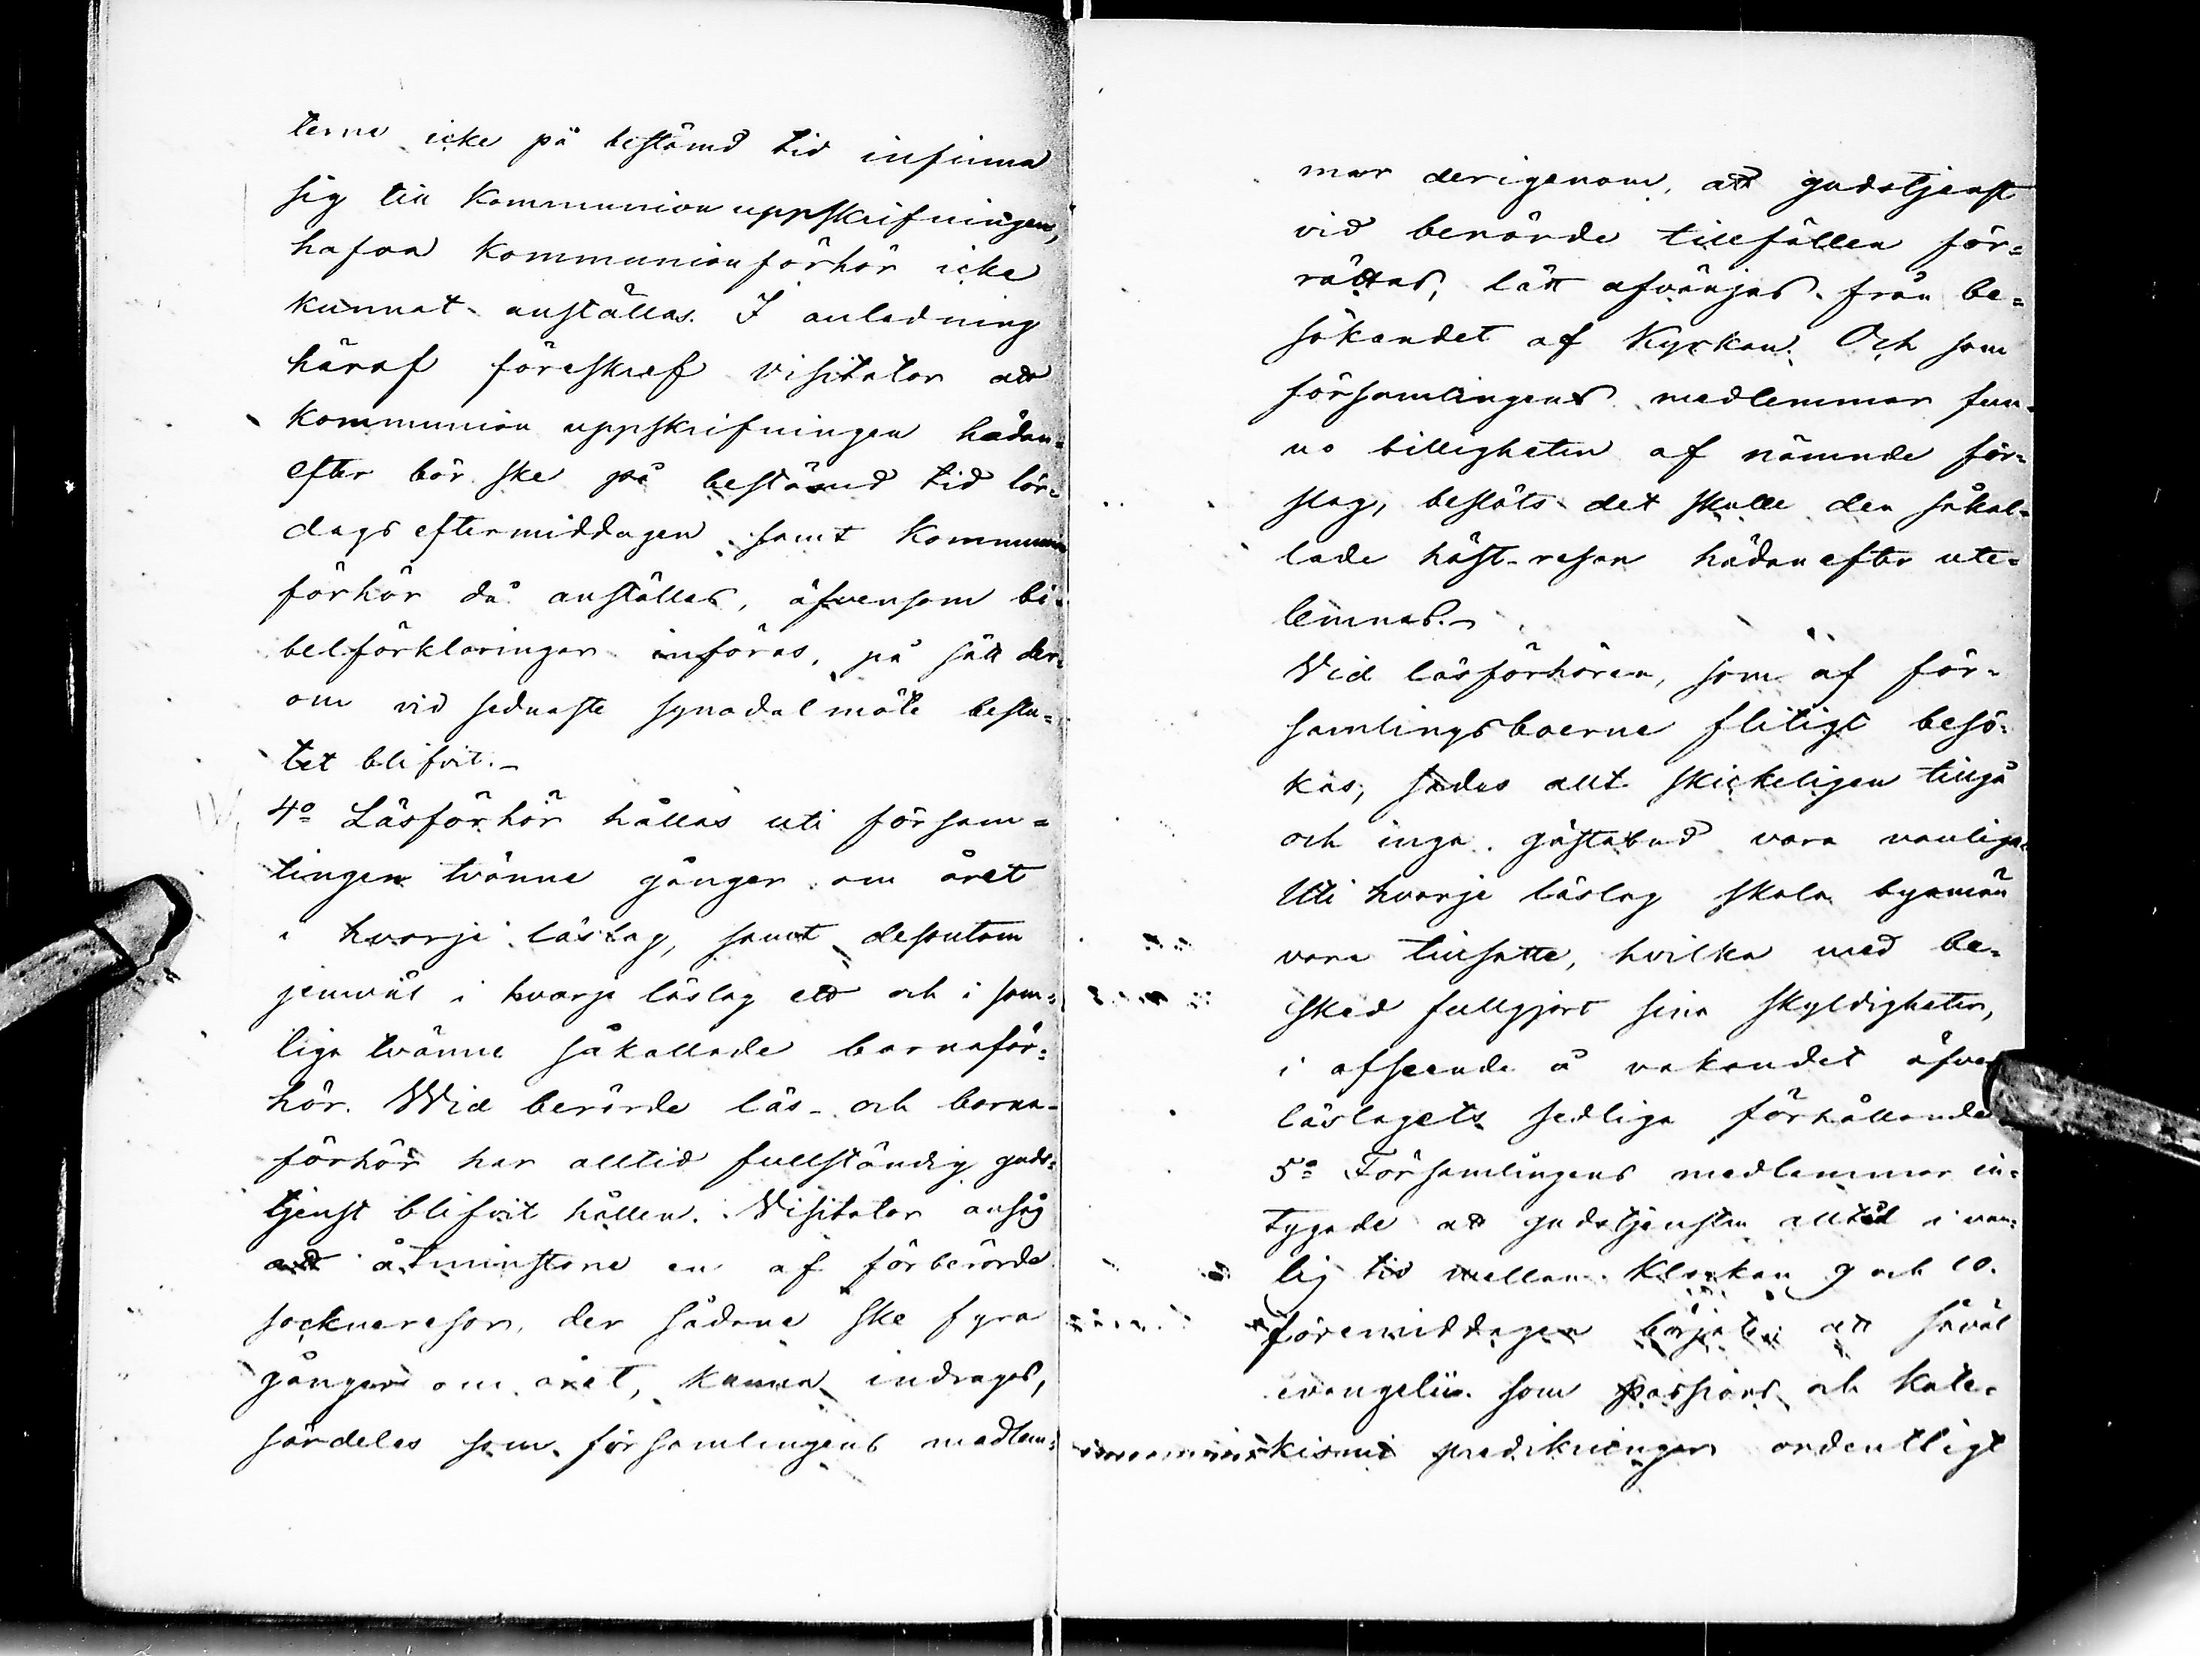 terne icke på bestämd tid infinna
sig till Kommunion uppskrifningen,
hafva Kommunionförhör icke
kunnat anställas. I anledning
häraf föreskref visitator att
Kommunion uppskrifningen hädan=
efter bör ske på bestämd tid lör=
dags eftermiddagen samt Kommunion
förhör då anställas, äfvensom bi=
belförklaringar införas, på sätt der=
om vid sednaste synodalmöte beslu=
tet blifvit.-
4o Läsförhör hållas uti försam=
lingen tvänne gånger om året
i hvarje läslag, samt dessutom
jemväl i hvarje läslag ett och i som=
liga tvänne såkallade barnaför=
hör. Wid berörde läs- och barna-
förhör har alltid fullständig guds=
tjenst blifvit hållen. Visitator ansåg
att åtminstone en af förberörde
socknaresor, der sådane ske fyra
gånger om året, kunna indragas,
särdeles som församlingens medlem=
mar derigenom, att gudstjenst
vid berörde tillfällen för=
rättas, lätt afvänjas från be=
sökandet af Kyrkan. Och som
församlingens medlemmar fun-
no billigheten af nämnde för=
slag, beslöts det skulle den såkal=
lade höst-resan hädanefter ute=
lemnas.-
Vid läsförhören, som af för=
samlingsboerne flitigt besö=
kas, sades allt skickeligen tillgå
och inga gästabud vara vanliga.
Uti hvarje läslag skola byamän
vara tillsatte, hvilka med be=
sked fullgjort sina skyldigheter,
i afseende å vakandet öfver
läslagets sedliga förhållande
5o Församlingens medlemmar in=
tygade att gudstjensten alltid i van=
lig tid mellan Klockan 9 och 10.
föremiddagen börjates att såväl
evangelii som passions och Kate=
kismi predikningar ordentligt